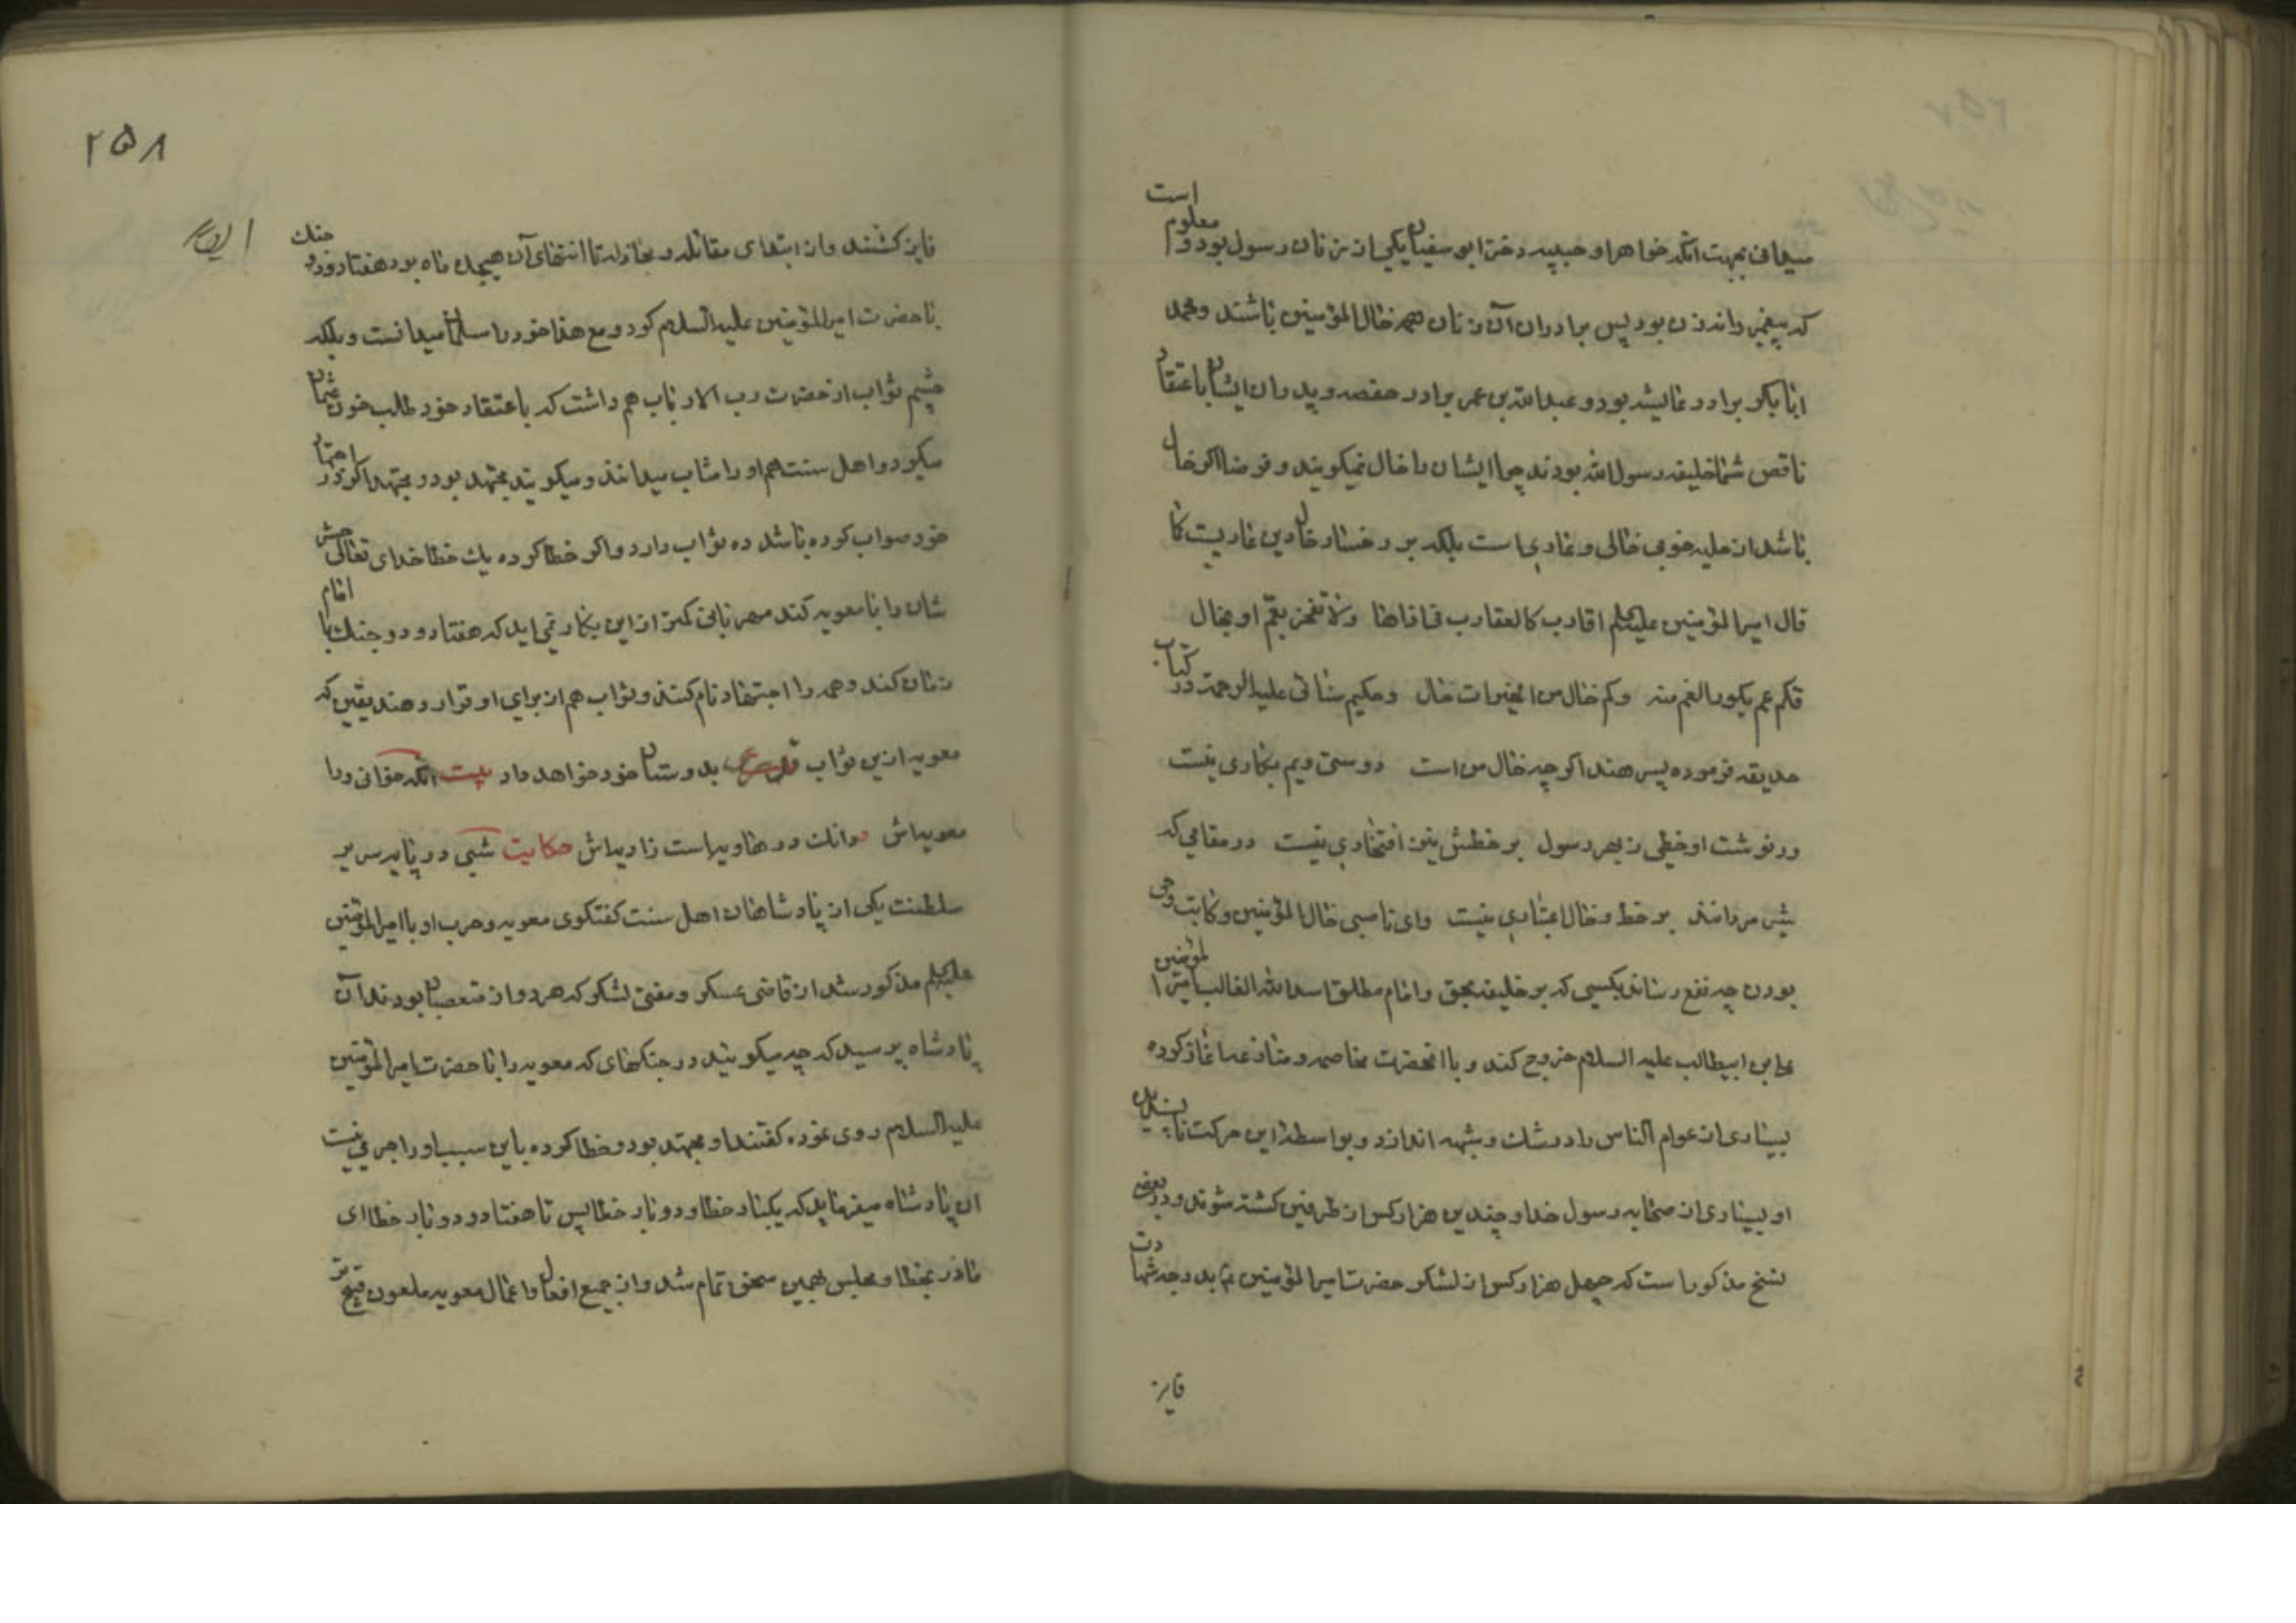 است
میدانی بجهت آنکه خواهر او حبیبه دختر ابو سفیان یکی از زنان رسول بود و معلوم
که پیغمبر را نه زن بود پس برادران آن زنان همه خال المؤمنین باشند و محمد
ابابکر برادر عایشه بود و عبدالله بن عمر برادر حفصه و پدران ایشان باعتقاد
ناقص شما خلیفه رسول الله بودند چرا ایشان را خال نمیکویند و فرضا اکر خال
باشد از حلیه خوبی خالی و عاری است بلکه بر رخسار خال دین عاریست کما
قال امیرالمؤمنین علیه السلم اقارب کالعقارب فی اذاها ولا تفخر بعم او بخال
فکم عم یکون الغم منه وکم خال من الخیرات خال وحکیم سنائی علیه الرحمة در کتاب
حدیقه فرموده پسر هند اکر چه خال من است دوستی ویم بکاری نیست
ور نوشت او خطی ز بهر رسول بر خطش نیز افتخاری نیست در مقامی که
شیر مردانند بر خط و خال اعتباری نیست وای ناصبی خال المؤمنین و کاتب وحی
بودن چه نفع رساند بکسی که بر خلیفه بحق و امام مطلق اسدالله الغالب امیر المؤمنین
علی بن ابیطالب علیه السلام خروج کند و با آنحضرت مخاصمه و منازعه اغاز کرده
بسیاری از عوام الناس را در شک و شبهه اندازد و بواسطه این حرکت ناپسندیده
او بسیاری از صحابه رسول خدا و چندین هزار کس از طرفین کشته شوند و در بعضی
نسخ مذکور است که چهل هزار کس از لشکر حضرت امیرالمؤمنین بدرجه شهادت
فایز
۲۵۸
فایز کشتند و از ابتدای مقاتله و مجادله تا انتهای آن هیجده ماه بود هفتاد و دو جنک
با حضرت امیرالمؤمنین علیه السلام کرد و مع هذا خود را مسلمان میدانست و بلکه
چشم ثواب از حضرت رب الارباب هم داشت که باعتقاد خود طالب خون عثمان
میکرد و اهل سنت هم او را مثاب میدانند و میکویند مجتهد بود و مجتهد اکر در اجتهاد
خود صواب کرده باشد ده ثواب دارد و اکر خطا کرده یک خطا خدای تعالی حشر
شان را با معویه کند مهربانی کمتر از این بکار نمی اید که هفتاد و دو جنک با امام
زمان کند و همه را اجتهاد نام کنند و ثواب هم از برای او قرار دهند یقین که
معویه ازین ثواب بدوستان خود خواهد داد بیت آنکه خوانی ورا
معویه اش دانک در هاویه است زاویه اش حکایت شبی در پایه سریر
سلطنت یکی از پادشاهان اهل سنت کفتکوی معویه و حرب او با امیرالمؤمنین
علیه السلم مذکور شد از قاضی عسکر و مفتی لشکر که هر دو از متعصبان بودند آن
پادشاه پرسید که چه میکویند در جنکهای که معویه را با حضرت امیرالمؤمنین
علیه السلام روی نموده کفتند او مجتهد بود و خطا کرده باین سبب او را جرمی نیست
ان پادشاه میفرماید که یکبار خطا و دو بار خطا پس تا هفتاد و دو بار خطا ای
مادر بخطا و مجلس بهمین سخن تمام شد و از جمیع افعال و اعمال معویه ملعون قبیح تر